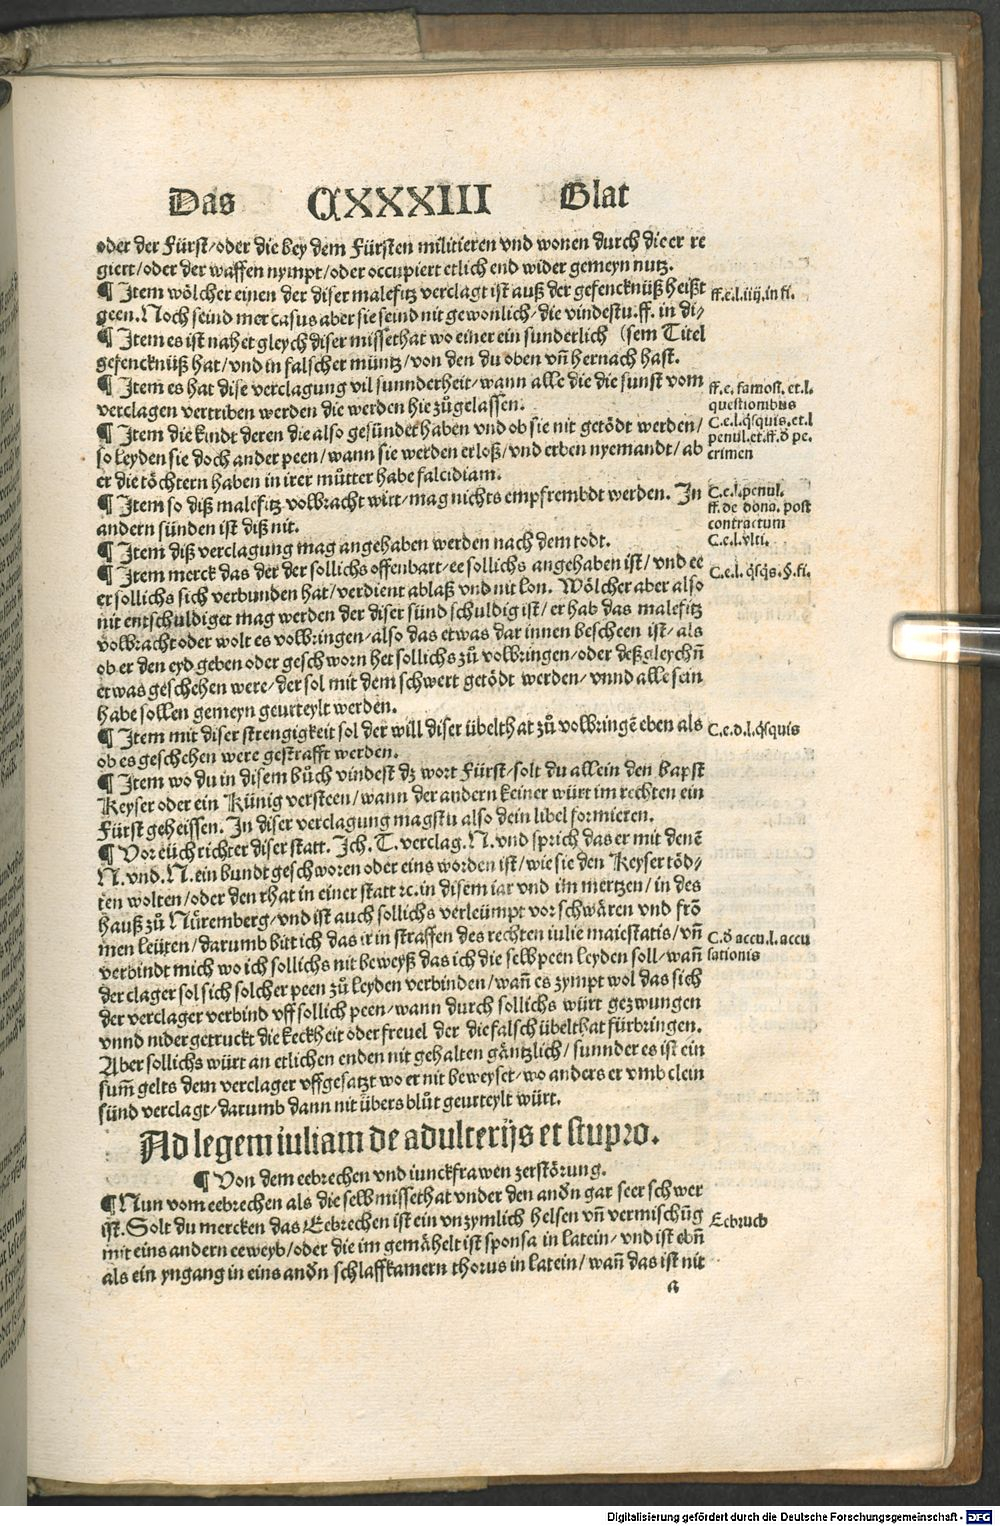 Das CXXXIII Glat
oder der Fürst/oder die bey dem Fürsten militieren vnd wonen durch die er re
giert/oder der waffen nympt/oder occupiert etlich end wider gemeyn nutz.
¶ Item wölcher einen der diser malefitz verclagt ist auß der gefencknüß heißt
ff.e.l.iiij.in fi.
geen. Noch seind mer casus aber sie seind nit gewonlich/die vindestu.ff. in di/
¶ Item es ist nahet gleych diser missethat wo einer ein sunderlich (sem Titel
gefencknüß hat/vnd in falscher müntz/von den du oben vñ hernach hast.
¶ Item es hat dise verclagung vil sunnderheit/wann alle die die sunst vom
ff.e. famosi. et.l.
verclagen vertriben werden die werden hie zůgelassen.
questionibus
¶ Item die kindt deren die also gesündet haben vnd ob sie nit getödt werden/
C.e.l.q̃squis.et.l
penul.et.ff.ð pe.
so leyden sie doch ander peen/wann sie werden erloß/vnd erben nyemandt/ab
crimen
er die töchtern haben in irer můtter habe falcidiam.
¶ Item so diß malefitz volbracht wirt/mag nichts empfrembdt werden. In
C.e.l.penul.
ff.de dona. post
andern sünden ist diß nit.
contractum
¶ Item diß verclagung mag angehaben werden nach dem todt.
C.e.l.vlti.
¶ Item merck das der der sollichs offenbart/ee sollichs angehaben ist/vnd ee
C.e.l. q̃sq̃s.§.fi.
er sollichs sich verbunden hat/verdient ablaß vnd nit lon. Wölcher aber also
nit entschuldiget mag werden der diser sünd schuldig ist/er hab das malefitz
volbracht oder wolt es volbringen/also das etwas dar innen bescheen ist/als
ob er den eyd geben oder geschworn het sollichs zů volbringen/oder deßgleychñ
etwas geschehen were/der sol mit dem schwert getödt werden/vnnd alle sein
habe sollen gemeyn geurteylt werden.
¶ Item mit diser strengigkeit sol der will diser übelthat zů volbringẽ eben als
C.e.d.l.q̃squis
ob es geschehen were gestrafft werden.
¶ Item wo du in disem bůch vindest dz wort Fürst/solt du allein den bapst
Keyser oder ein Künig versteen/wann der andern keiner würt im rechten ein
Fürst geheissen. In diser verclagung magstu also dein libel formieren.
¶ Vor eüch richter diser statt. Ich. T. verclag. N. vnd sprich das er mit denẽ
N. vnd. N. ein bundt geschworen oder eins worden ist/wie sie den Keyser töd/
ten wolten/oder den rhat in einer statt ꝛc. in disem iar vnd im mertzen/in des
hauß zů Nüremberg/vnd ist auch sollichs verleümpt vor schwären vnd frõ
men leüten/darumb bitt ich das ir in straffen des rechten iulie maiestatis/vñ
C.ð accu.l.accu
verbindt mich wo ich sollichs nit beweyß das ich die selb peen leyden soll/wañ
sationis
der clager sol sich solcher peen zů leyden verbinden/wañ es zympt wol das sich
der verclager verbind vff sollich peen/wann durch sollichs würt gezwungen
vnnd nidergetruckt die keckheit oder freuel der die falsch übelthat fürbringen.
Aber sollichs würt an etlichen enden nit gehalten gäntzlich/sunnder es ist ein
sum̃ gelts dem verclager vffgesatzt wo er nit beweyset/wo anders er vmb clein
sünd verclagt/darumb dann nit übers blůt geurteylt würt.
Ad legem iuliam de adulterijs et stupro.
¶ Von dem eebrechen vnd iunckfrawen zerstörung.
¶ Nun vom eebrechen als die selb missethat vnder den andñ gar seer schwer
ist. Solt du mercken das Eebrechen ist ein vnzymlich helsen vñ vermischũg
Eebruch
mit eins andern eeweyb/oder die im gemähelt ist sponsa in latein/vnd ist ebñ
als ein yngang in eins andñ schlaffkamern thorus in latein/wañ das ist nit
Digitalisierung gefördert durch die Deutsche Forschungsgemeinschaft - DFG